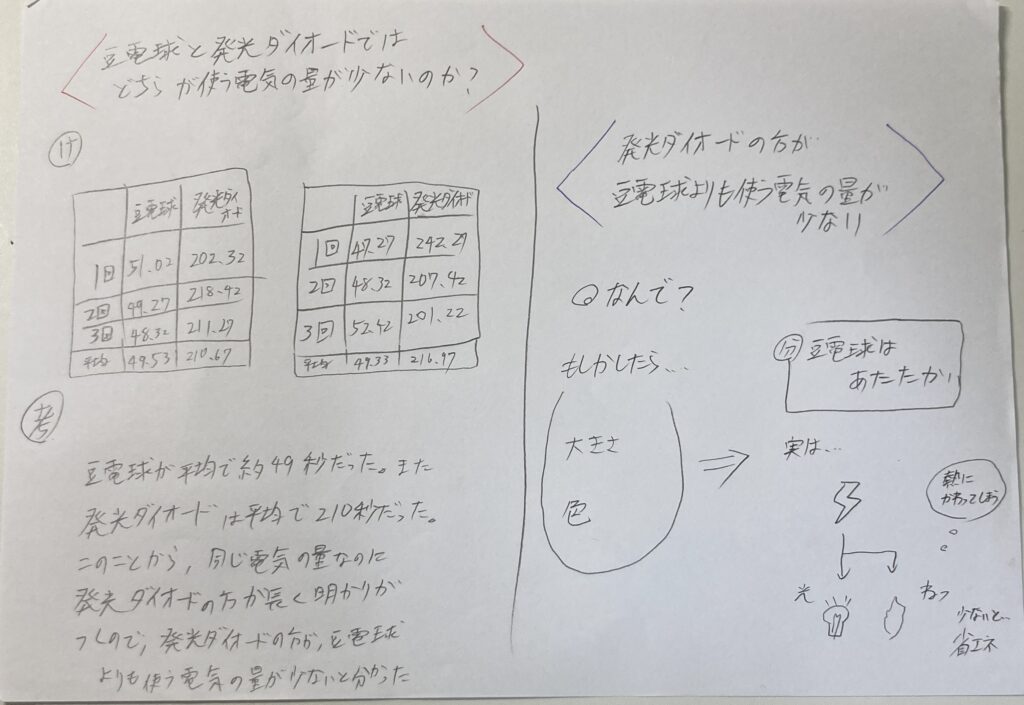 豆電球と発光ダイオードでは
どちらが使う電気の量が少ないのか?
け
豆電球 発光ダイオード
1回 51.02 202.32
2回 49.27 218.42
3回 48.32 211.27
平均 49.53 210.67
豆電球 発光ダイオード
1回 47.27 242.29
2回 48.32 207.42
3回 52.42 201.22
平均 49.33 216.97
考
豆電球が平均で約49秒だった。また
発光ダイオードは平均で210秒だった。
このことから,同じ電気の量なのに
発光ダイオードの方が長く明かりが
つくので,発光ダイオードの方が,豆電球
よりも使う電気の量が少ないと分かった
発光ダイオードの方が
豆電球よりも使う電気の量が
少ない
Qなんで?
もしかしたら...
大きさ
色
分 豆電球は
あたたかい
実は...
熱に
かわってしまう
光 ねつ
少ないと...
省エネ